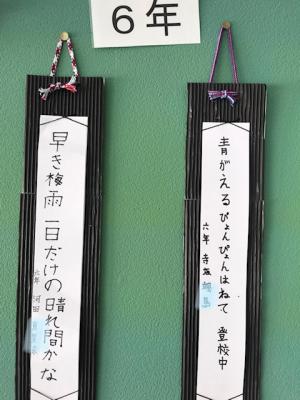 6年
青がえるぴょんぴょんはねて 登校中
六年 寺坂
早き梅雨 一日だけの晴れ間かな
六年 河田